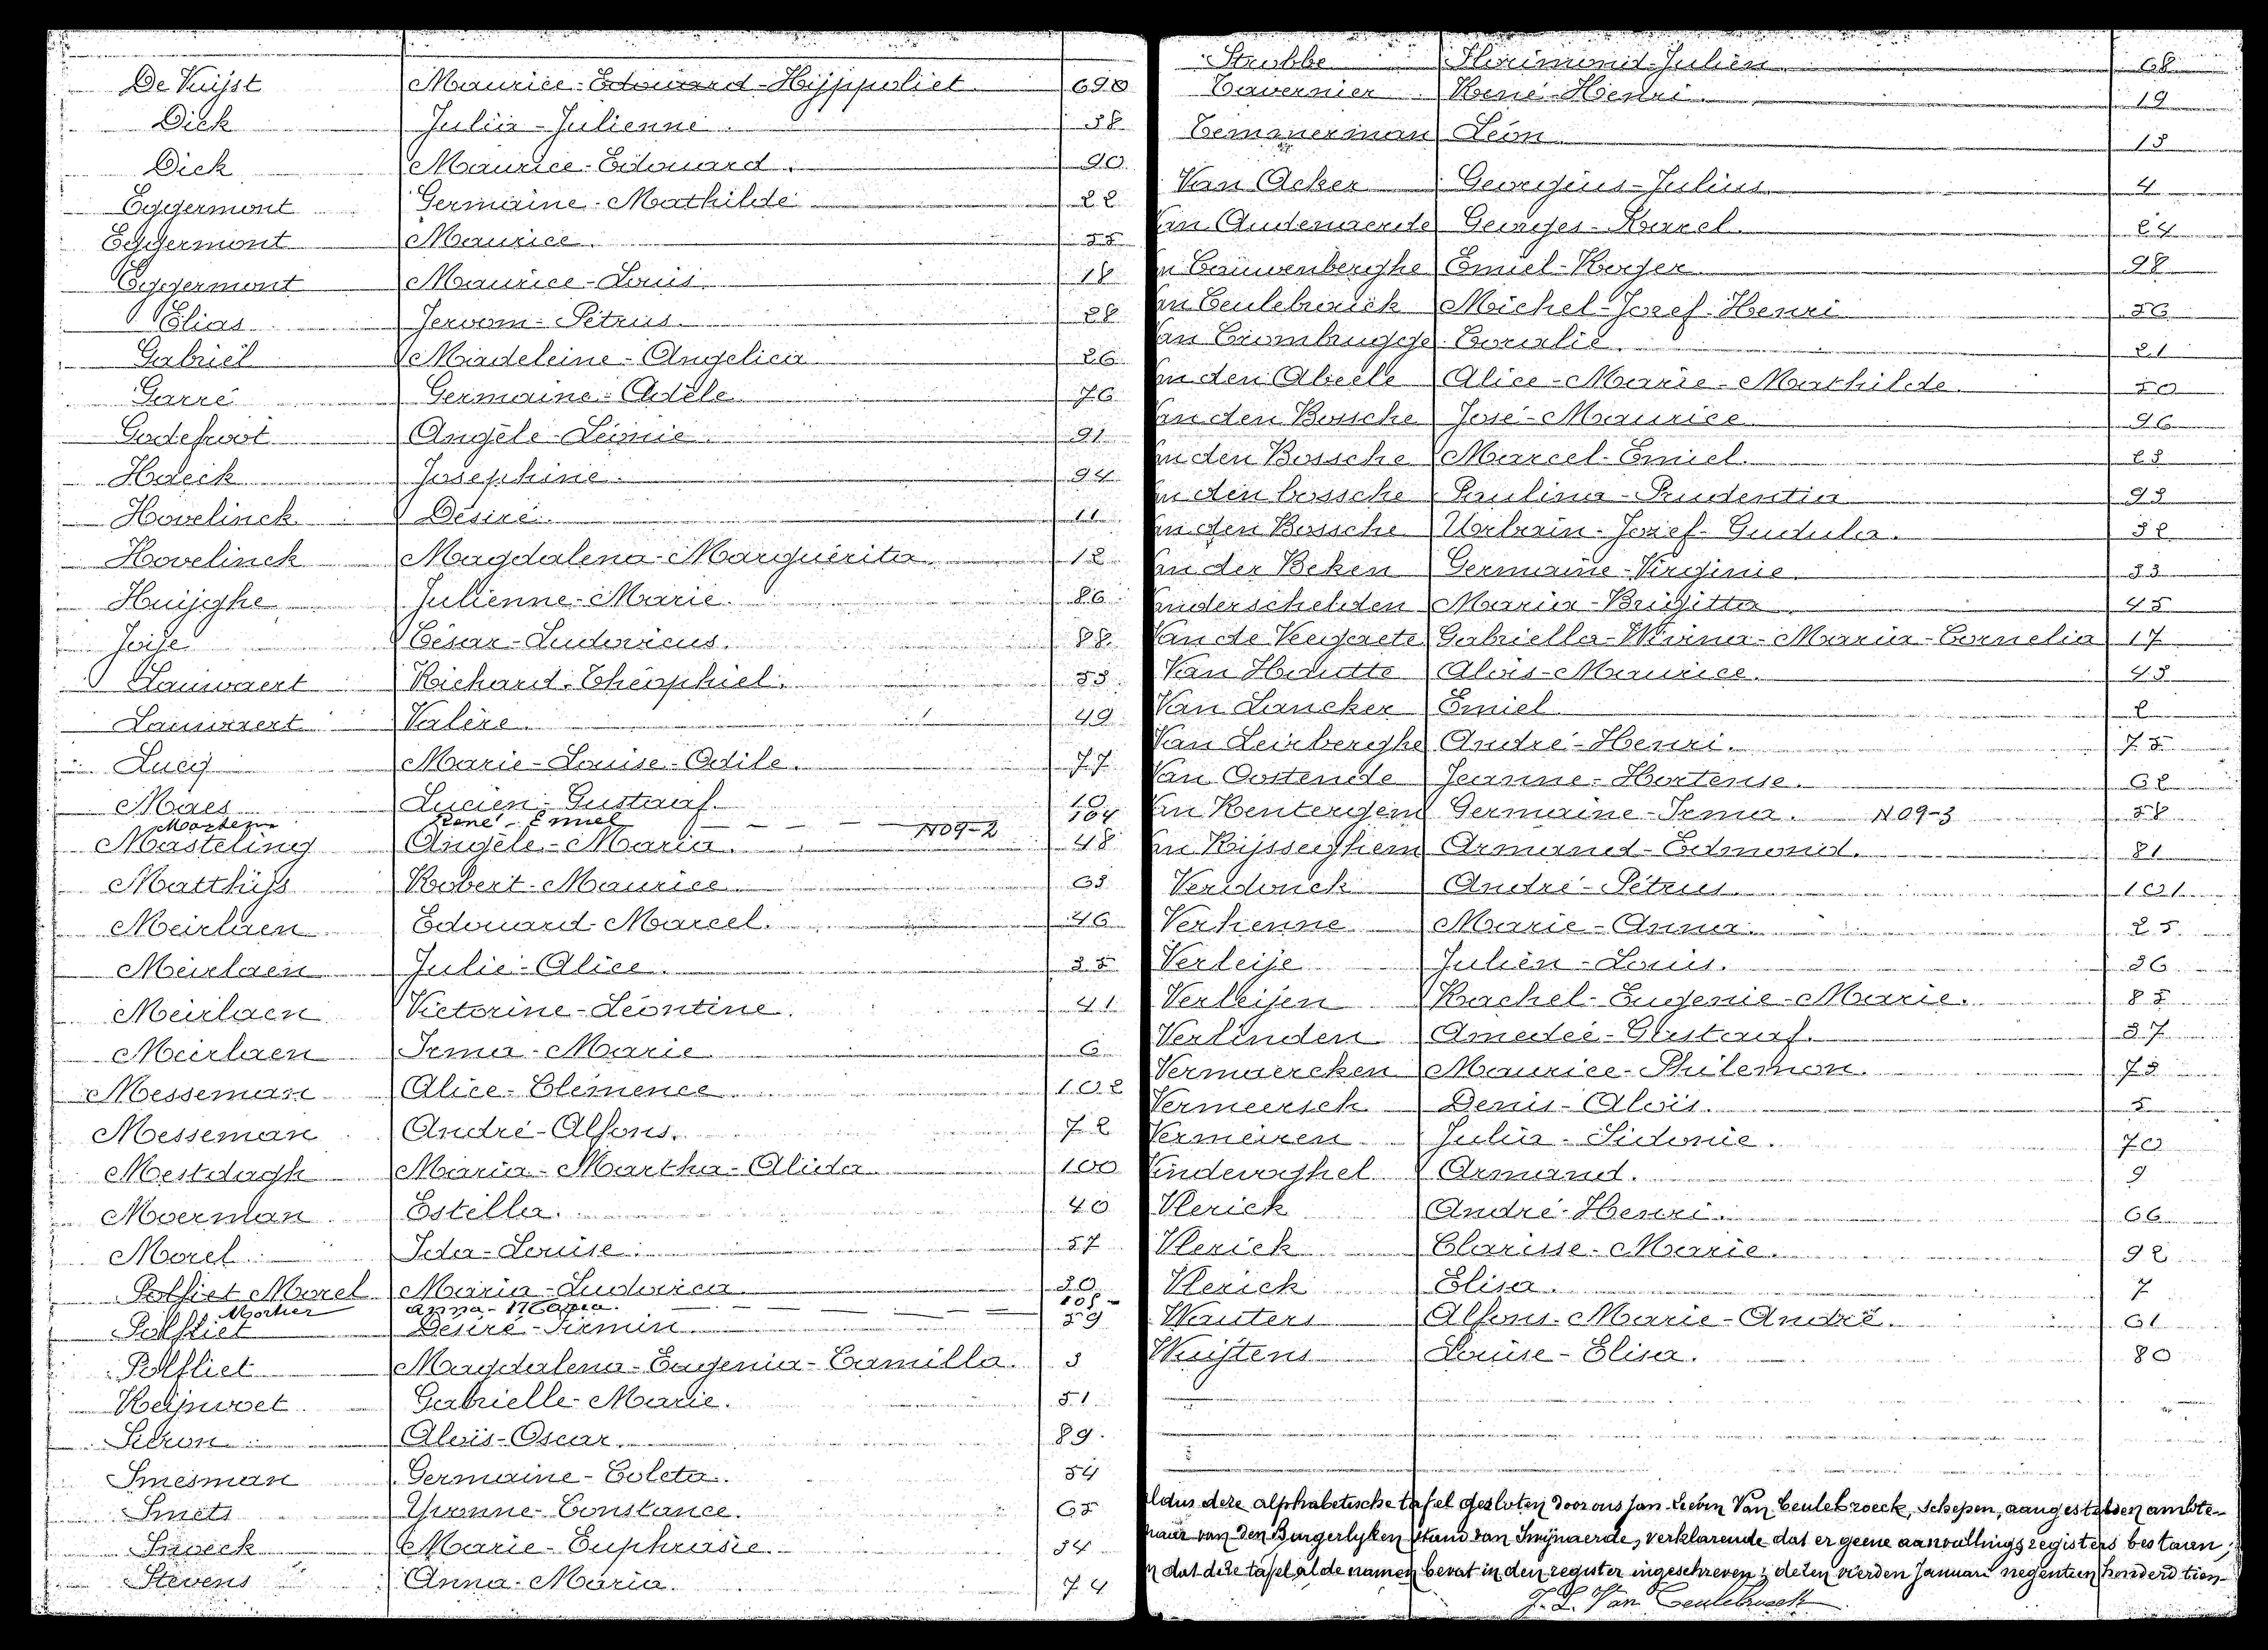 De Kuijst Maurice-Edouard-Hijppoliet 69
Dick Julia-Julienne 38
Dick Maurice-Edouard. 90
Eggermont Germaine-Mathilde 22
Eggermont Maurice. 55
Eggermont Maurice-Louis 18
Elias Jerom-Petrus. 28
Gabriël Madeleine-Angelica 26
Garré Germaine-Adèle 76
Godefroot Angèle-Leonie 91
Haeck Josephine. 94
Hovelinck Desiré. 11
Hovelinck Magdalena-Marguerita 12
Huijghe Julienne-Marie. 86
Joije César-Ludovicus. 88
Lauwaert Richard-Théophiel. 53
Lauwaert Valère. 49
Lucij Marie-Louise-Odile. 77
Maes Lucien-Gustaaf. 10
Martens René-Emiel 104
Masteling Angèle-Maria. N09-2 48
Matthijs Robert-Maurice 63
Meirlaen Edouard-Marcel. 46
Meirlaen Julie-Alice. 35
Meirlaen Victorine-Léontine. 41
Meirlaen Irma-Marie 6
Messeman Alice-Clémence 102
Messeman André-Alfons. 72
Mestdagh Maria-Martha-Alida 100
Moerman Estella. 40
Morel Ida-Louise. 57
Polfliet Morel Maria-Ludovica 30
Mortier Anna-Maria. 105
Polfliet Desiré-Firmin 59
Polfliet Magdalena-Eugenia-Camilla. 3
Reijnvoet Gabrielle-Marie. 51
Alois-Oscar. 89
Smesman Germaine-Coleta. 54
Smets Yvonne-Constance. 65
Snoeck Marie-Euphrasie. 34
Stevens Anna-Maria. 74
Strubbe Florimond-Julien 68
Tavernier René-Henri. 19
Temmerman Léon 13
Van Acker Georgius-Julius 4
an Audenaerde Georges-Karel. 24
n Cauwenberghe Emiel-Roger 98
an Ceulebroeck Michel-Jozef-Henri 56
an Crombrugge Coralie. 21
n den Abeele Alice-Marie-Mathilde. 50
an den Bossche José-Maurice 96
n den Bossche Marcel-Emiel. 23
n den bossche Paulina-Prudentia 93
an den Bossche Urbain-Jozef-Gudula. 32
an der Beken Germaine-Virginie 33
anderschelden Maria-Brigitta 45
Van de Veegaete Gabriella-Maria-Cornelia 17
Van Hautte Alois-Maurice. 43
Van Lancker Emiel 2
Van Leirberghe André-Henri. 75
Van Oostende Jeanne-Hortense. 62
an Renterghem Germaine-Irma. N09-3 58
an Rijsseghem Armand-Edmond. 81
Verdonck André-Petrus 101
Verhenne Marie-Anna. 25
Verleije Julien-Louis. 36
Verleijen Rachel-Eugenie-Marie. 85
Verlinden Amedée-Gustaaf. 37
Vermaercken Maurice-Philemon. 73
Vermeersch Denis-Aloïs. 5
Vermeiren Julia-Sidonie. 70
indevoghel Armand. 9
Vlerick André-Henri. 66
Vlerick Clarisse-Marie. 92
Vlerick Elisa. 7
Wauters Alfons-Marie-André. 61
Wuijtens Louise-Elisa. 80
ldus deze alphabetische tafel gesloten door ons Jan-Lieven Van Ceulebroeck, Schepen, aangestelden ambte-
naar van den Burgerlyken stand van Swijnaerde, verklarende dat er geene aanvullingsregisters bestaan;
n dat deze tafel al de namen bevat in den register ingeschreven; dezen vierden Januari negentien honderd tien
J. L. Van Ceulebroeck